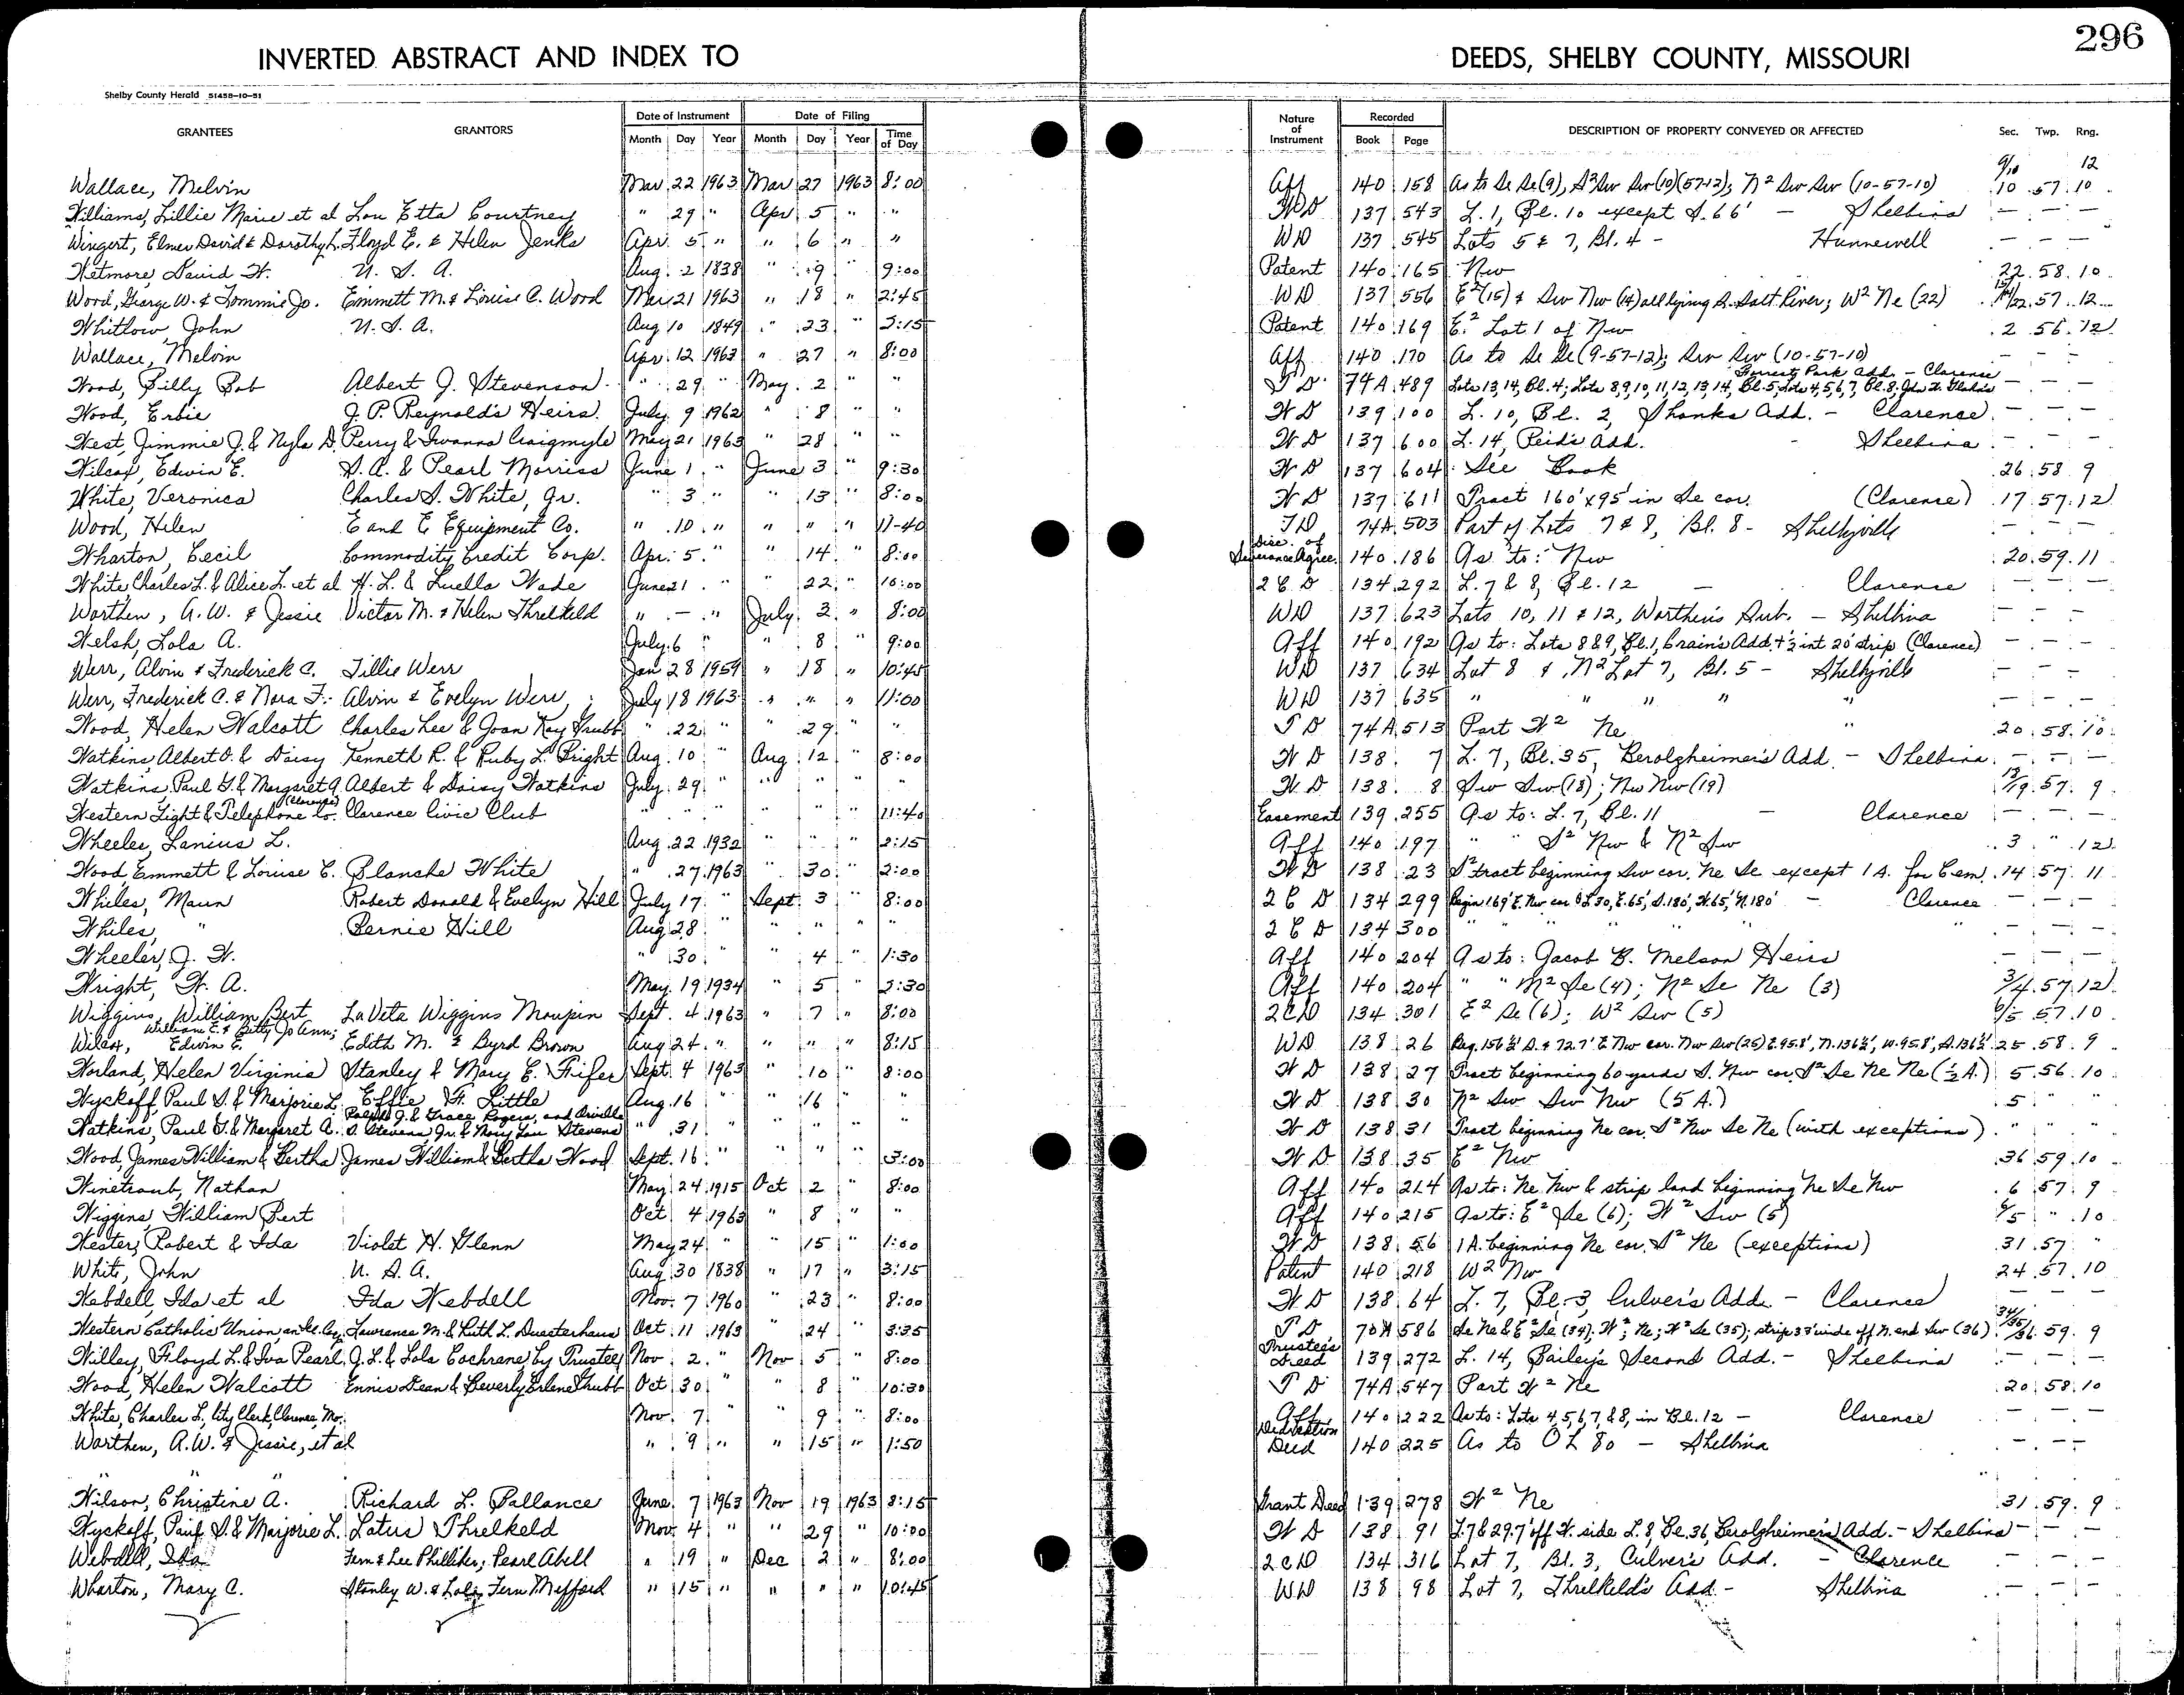 296
INVERTED ABSTRACT AND INDEX TO DEEDS, SHELBY COUNTY, MISSOURI
Shelby County Herald 51458-10-51
GRANTEES GRANTORS Date of Instrument Date of Filing Nature of Instrument Recorded DESCRIPTION OF PROPERTY CONVEYED OR AFFECTED Sec. Twp. Rng.
Month Day Year Month Day Year Time of Day Book Page
9/10 12
Wallace, Melvin Mar 22 1963 Mar 27 1963 8:00 Aff 140 158 As to Se Se (9), S2 Sw Sw (10) (57-12); N2 Sw Sw (10-57-10) 10 57 10
Williams, Lillie Marie et al Lou Etta Courtney " 29 " Apr 5 " " WD 137 543 L. 1, Bl. 10 except S. 66' - Shelbina — — —
Wingert, Elmer David & Dorothy L. Floyd E. & Helen Jenks Apr. 5 " " 6 " " WD 137 545 Lots 5 & 7, Bl. 4 - Hunnewell — — —
Wetmore, David W. U. S. A. Aug. 2 1838 " 9 " 9:00 Patent 140 165 Nw 22 58 10
Wood, George W. & Tommie Jo. Emmett M. & Louise C. Wood Mar 21 1963 " 18 " 2:45 WD 137 556 E2 (15) & Sw Nw (14) all lying S. Salt River; W2 Ne (22) 15/14/22 57 12
Whitlow, John U. S. A. Aug 10 1849 " 23 " 3:15 Patent 140 169 E.2 Lot 1 of Nw 2 56 12
Wallace, Melvin Apr. 12 1963 " 27 " 8:00 Aff 140 170 As to Se Se (9-57-12); Sw Sw (10-57-10) — — —
Forrest Park Add. - Clarence
Wood, Billy Bob Albert J. Stevenson " 29 " May 2 " " T D 74A 489 Lots 13, 14, Bl. 4; Lots 8, 9, 10, 11, 12, 13, 14, Bl. 5; Lots 4, 5, 6, 7, Bl. 8, — — —
Wood, Erbie J. P. Reynold's Heirs July 9 1962 " 8 " " W D 139 100 L. 10, Bl. 2, Shanks Add. - Clarence — — —
West, Jimmie J. & Nyla D. Perry & Iwanna Craigmyle May 21 1963 " 28 " " W D 137 600 L. 14, Reid's Add. - Shelbina — — —
Wilcox, Edwin E. S. A. & Pearl Morriss June 1 " June 3 " 9:30 W D 137 604 See Book 26 58 9
White, Veronica Charles S. White, Jr. " 3 " " 13 " 8:00 W D 137 611 Tract 160' x 95' in Se cor. (Clarence) 17 57 12
Wood, Helen E and E Equipment Co. " 10 " " " " 11-40 TD 74A 503 Part of Lots 7 & 8, Bl. 8 - Shelbyville — — —
Wharton, Cecil Commodity Credit Corp. Apr. 5 " " 14 " 8:00 Disc. of Severance Agree. 140 186 As to: Nw 20 59 11
White, Charles L. & Alice L. et al H. L. & Luella Wade June 21 " " 22 " 10:00 2 C D 134 292 L. 7 & 8, Bl. 12 — Clarence — — —
Worthen, A. W. & Jessie Victor M. & Helen Threlkeld " — " July 3 " 8:00 WD 137 623 Lots 10, 11 & 12, Worthen's Sub. - Shelbina — — —
Welsh, Lola A. July 6 " " 8 " 9:00 Aff 140 192 As to: Lots 8 & 9, Bl. 1, Crain's Add. & ½ int 20' strip (Clarence) — — —
Werr, Alvin & Frederick C. Tillie Werr Jan 28 1959 " 18 " 10:45 WD 137 634 Lot 8 & N2 Lot 7, Bl. 5 - Shelbyville — — —
Werr, Frederick C. & Nora F. Alvin & Evelyn Werr July 18 1963 " " " 11:00 WD 137 635 " " " " " — — —
Wood, Helen Walcott Charles Lee & Joan Kay Grubb " 22 29 " " T D 74A 513 Part W2 Ne " 20 58 10
Watkins, Albert O. & Daisy Kenneth R. & Ruby L. Bright Aug. 10 " Aug 12 " 8:00 W D 138 7 L. 7, Bl. 35, Berolzheimer's Add. - Shelbina — — —
Watkins, Paul G. & Margaret A. Albert & Daisy Watkins July 29 " " " " " W. D 138 8 Sw Sw (18); Nw Nw (19) 18/19 57 9
Western Light & Telephone Co. (Clarence) Clarence Civic Club " " " " " " 11:40 Easement 139 255 As to: L. 7, Bl. 11 — Clarence — — —
Wheeler, Lanius L. Aug 22 1932 " " " 2:15 Aff 140 197 " " S2 Nw & N2 Sw 3 " 12
Wood, Emmett & Louise C. Blanche White " 27 1963 " 30 " 2:00 W D 138 23 S2 tract beginning Sw cor. Ne Se except 1 A. for Cem. 14 57 11
Whiles, Maun Robert Donald & Evelyn Hill July 17 " Sept 3 " 8:00 2 C D 134 299 Begin 169' E. Nw cor OL 30, E. 65', S. 180', W. 65', N. 180' — Clarence — — —
Whiles, " Bernie Hill Aug 28 " " " " 2 C D 134 300 " " " " " — — —
Wheeler, J. W. " 30 " " 4 " 1:30 Aff 140 204 As to: Jacob B. Melson Heirs — — —
Wright, W. A. May 19 1934 " 5 " 3:30 Aff 140 204 " " N2 Se (4); N2 Se Ne (3) 3/4 57 12
Wiggins, William Bert LaVeta Wiggins Maupin Sept. 4 1963 " 7 " 8:00 2CD 134 301 E2 Se (6); W2 Sw (5) 6/5 57 10
William E. & Betty Jo Ann;
Wilcox, Edwin E. Edith M. & Byrd Brown Aug 24 " " " " 8:15 WD 138 26 Beg. 156½' S. & 72.7' E Nw cor. Nw Sw (25) E. 95.8', N. 136½', W. 95.8', S. 136½' 25 58 9
Worland, Helen Virginia Stanley & Mary E. Fifer Sept. 4 1963 " 10 " 8:00 W D 138 27 Tract beginning 60 yards S. Nw cor. S2 Se Ne Ne (½ A.) 5 56 10
Wyckoff, Paul S. & Marjorie L. Effie H. Little Aug. 16 " " 16 " " W D 138 30 N2 Sw Sw Nw (5 A.) 5 " "
Ralph J. & Grace Rogers, and Orville
Watkins, Paul G. & Margaret A. D. Stevens, Jr. & Mary Lou Stevens " 31 " " " " " W D 138 31 Tract beginning Ne cor. S2 Nw Se Ne (with exceptions) " " "
Wood, James William & Bertha James William & Bertha Wood Sept. 16 " " " " 3:00 W D 138 35 E2 Nw 36 59 10
Winetraub, Nathan May 24 1915 Oct 2 " 8:00 Aff 140 214 As to: Ne Nw & strip land beginning Ne Se Nw 6 57 9
Wiggins, William Bert Oct 4 1963 " 8 " " Aff 140 215 As to: E2 Se (6); W2 Sw (5) 6/5 " 10
Wester, Robert & Ida Violet H. Glenn May 24 " " 15 " 1:00 W D 138 56 1 A. beginning Ne cor. S2 Ne (exceptions) 31 57 "
White, John U. S. A. Aug 30 1838 " 17 " 3:15 Patent 140 218 W2 Nw 24 57 10
Webdell, Ida et al Ida Webdell Nov. 7 1960 " 23 " 8:00 W. D 138 64 L. 7, Bl. 3, Culver's Add. - Clarence — — —
Western Catholic Union Lawrence M. & Ruth L. Duesterhaus Oct 11 1963 " 24 " 3:35 T D 70A 586 Se Ne & E2 Se (34); W2; Ne; W2 Se (35); strip 33' wide off N. end Sw (36) 34/35/36 59 9
Willey, Floyd L. & Iva Pearl J. L. & Lola Cochrane, by Trustee Nov 2 " Nov 5 " 8:00 Trustee's Deed 139 272 L. 14, Bailey's Second Add. - Shelbina — — —
Wood, Helen Walcott Ennis Dean & Beverly Erlene Grubb Oct 30 " " 8 " 10:30 T D 74A 547 Part W2 Ne 20 58 10
White, Charles L. City Clerk, Clarence, Mo. Nov. 7 " " 9 " 8:00 Aff 140 222 As to: Lots 4, 5, 6, 7, & 8, in Bl. 12 - Clarence — — —
Warthen, A. W. & Jessie, et al " 9 " " 15 " 1:50 Dedication Deed 140 225 As to OL 80 - Shelbina — — —
" "
Wilson, Christine A. Richard L. Ballance June 7 1963 Nov 19 1963 8:15 Grant Deed 139 278 W2 Ne 31 59 9
Wyckoff, Paul S. & Marjorie L. Lotus Threlkeld Nov. 4 " " 29 " 10:00 W D 138 91 L. 7 & 29.7' off W. side L. 8, Bl. 36, Berolzheimer's Add. - Shelbina — — —
Webdell, Ida Fern & Lee Philliber; Pearl Abell " 19 " Dec 2 " 8:00 2CD 134 316 Lot 7, Bl. 3, Culver's Add. - Clarence — — —
Wharton, Mary C. Stanley W. & Lola Fern Mefford " 15 " " " " 10:45 WD 138 98 Lot 7, Threlkeld's Add - Shelbina — — —